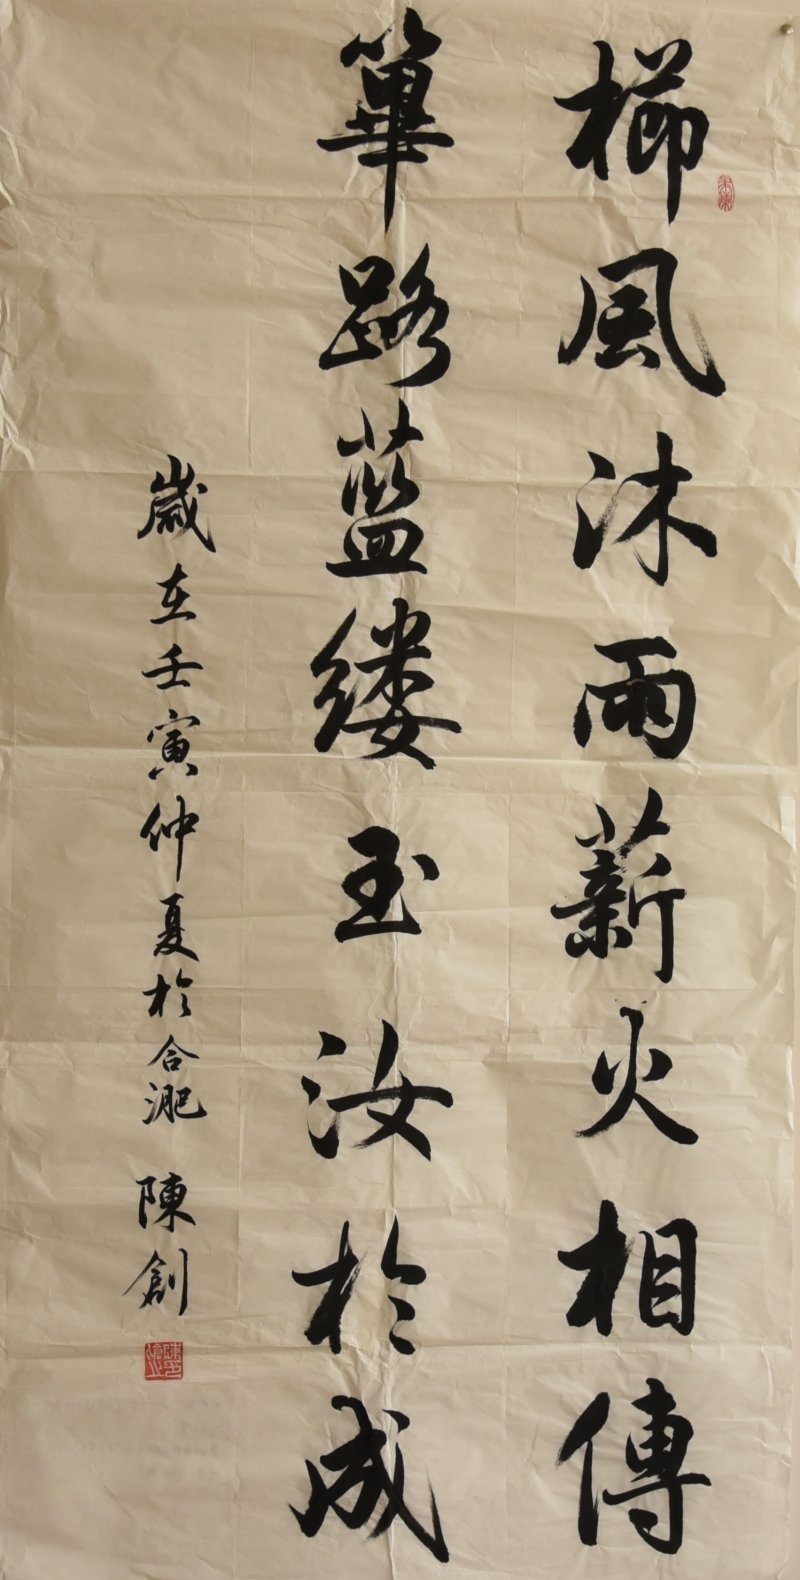 櫛風沐雨薪火相傳
篳路蓝缕玉汝於成
歲在壬寅仲夏於合淝 陳創